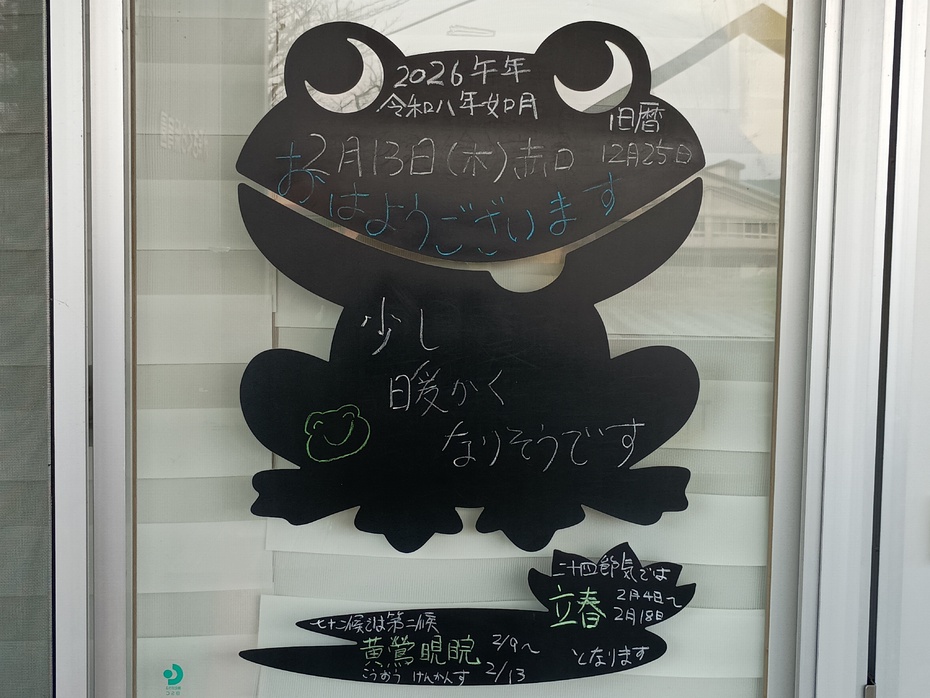 2026午年
令和八年如月
旧暦
12月25日
2月13日(木)赤口
おはようございます
少し
暖かく
なりそうです
二十四節気では
立春
2月4日〜
2月18日
となります
七十二候では第二候
黄鶯睍睆
こうおう けんかんす
2/9〜
2/13